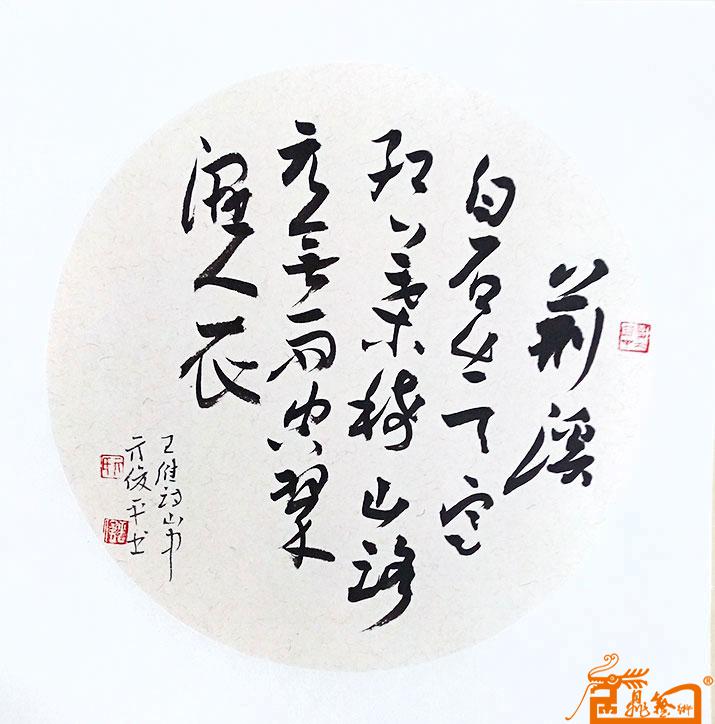 荆溪
白石出天寒
红葉稀山路
元無雨空翠
湿人衣
王维诗山中
亓俊平书